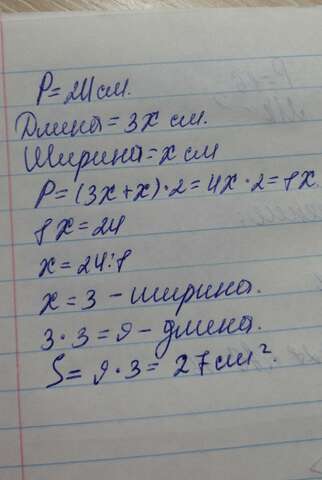 P=24см.
Длина=3x см.
Ширина=x см
P=(3x+x)·2=4x·2=8x.
8x=24
x=24:8
x=3-ширина.
3·3=9-длина.
S=9·3=27см².